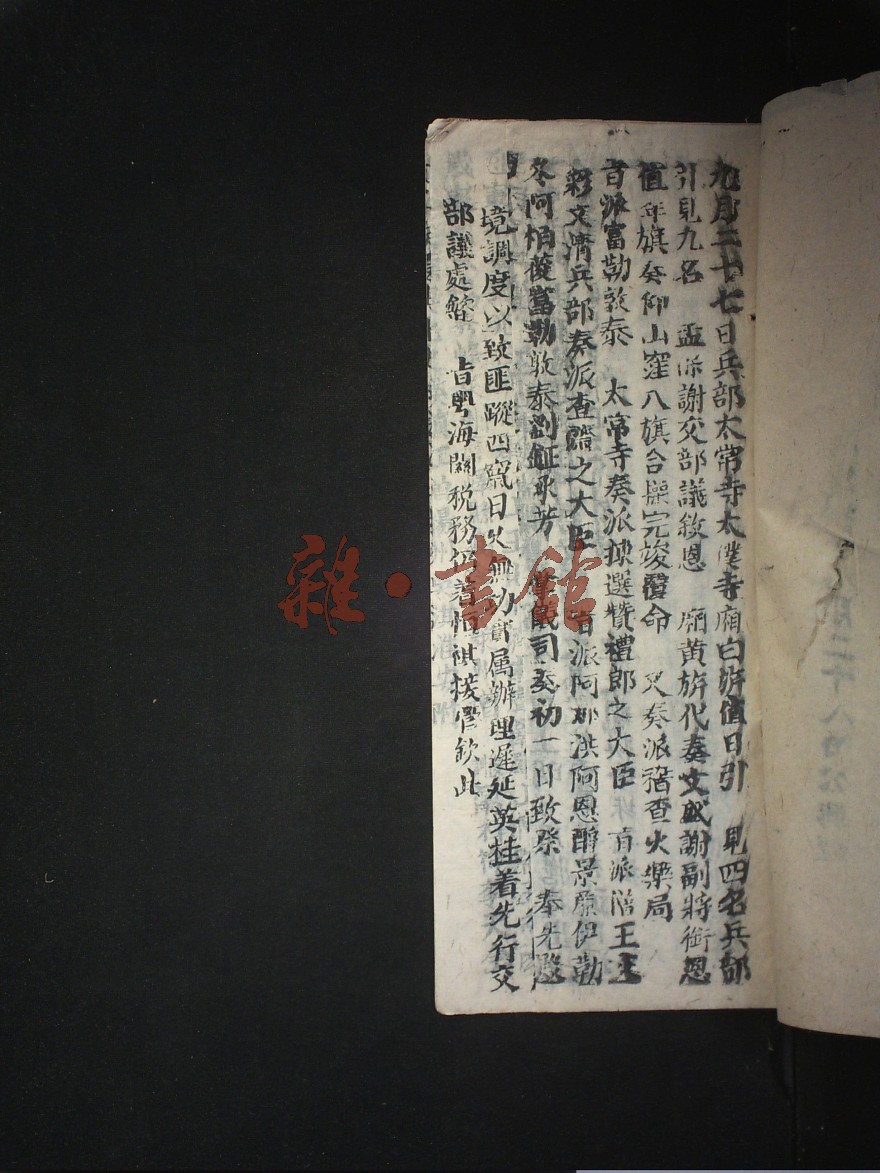 九月二十七日兵部太常寺太僕寺廂白旂值日引　見四名兵部
引見九名　孟保謝交部議敘恩　廂黃旂代奏文成謝副將銜恩
值年旗奏仰山窪八旗合操完竣覆命　又奏派稽查火藥局
旨派富勒敦泰　太常寺奏派揀選贊禮郎之大臣　旨派　王
彩文清兵部奏派查　之大臣　旨派阿　洪阿恩醇景廉伊勒
冬阿怕　富勒敦泰劉　承芳　掌儀司奏初一日致祭　奉先殿
境調度以致匪蹤四竄日久無功實屬辦理遲延英桂着先行交
部議處　旨粵海關稅務仍着恒祺接管欽此
雜·書館